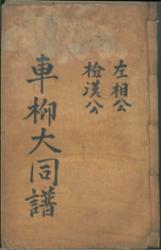 左相公
檢漢公
車柳大同譜